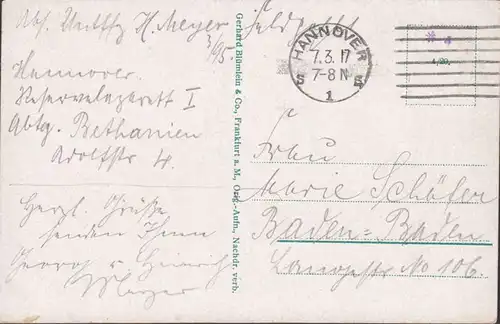 Abs. Untffz H. Meyer
Feldpost
HANNOVER
7.3.17
7-8 N
S S
1
Hannover
Reservelazarett I
Abtg. Bethanien
Adolfstr 4.
Herzl. Grüße
senden Ihnen
Heinrich
Meyer
Gerhard Blümlein & Co., Frankfurt a. M., Orig.-Autn., Nachdr. verb.
Frau
Marie Schäfer
Baden-Baden
No 106.